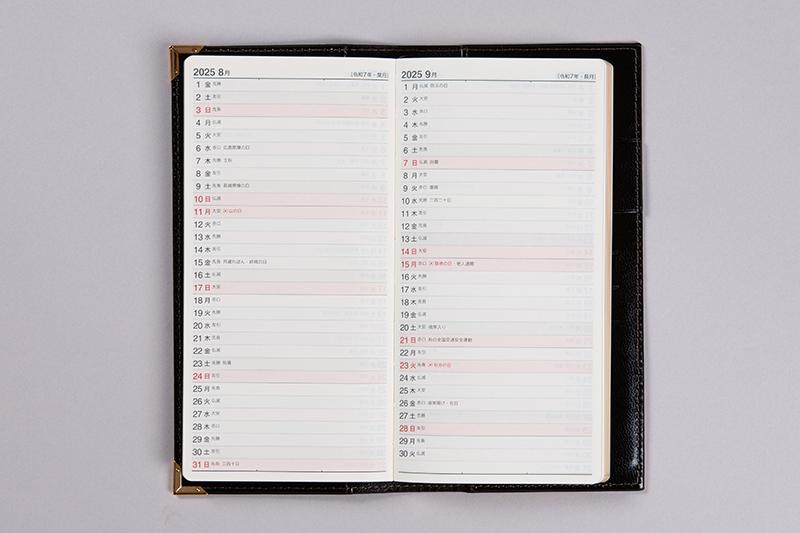 2025 8月 [令和7年・葉月]
1 金 先勝
2 土 友引
3 日 先負
4 月 仏滅
5 火 大安
6 水 赤口 広島原爆の日
7 木 先勝 立秋
8 金 友引
9 土 先負 長崎原爆の日
10 日 仏滅
11 月 大安 山の日
12 火 赤口
13 水 先勝
14 木 友引
15 金 先負 月遅れぼん・終戦の日
16 土 仏滅
17 日 大安
18 月 赤口
19 火 先勝
20 水 友引
21 木 先負
22 金 仏滅
23 土 先勝 処暑
24 日 友引
25 月 先負
26 火 仏滅
27 水 大安
28 木 赤口
29 金 先勝
30 土 友引
31 日 先負 二百十日
2025 9月 [令和7年・長月]
1 月 仏滅 防災の日
2 火 大安
3 水 赤口
4 木 先勝
5 金 友引
6 土 先負
7 日 仏滅 白露
8 月 大安
9 火 赤口 重陽
10 水 先勝 二百二十日
11 木 友引
12 金 先負
13 土 仏滅
14 日 大安
15 月 赤口 敬老の日・老人週間
16 火 先勝
17 水 友引
18 木 先負
19 金 仏滅
20 土 大安 彼岸入り
21 日 赤口 秋の全国交通安全運動
22 月 友引
23 火 先負 秋分の日
24 水 仏滅
25 木 大安
26 金 赤口 彼岸明け・社日
27 土 先勝
28 日 友引
29 月 先負
30 火 仏滅